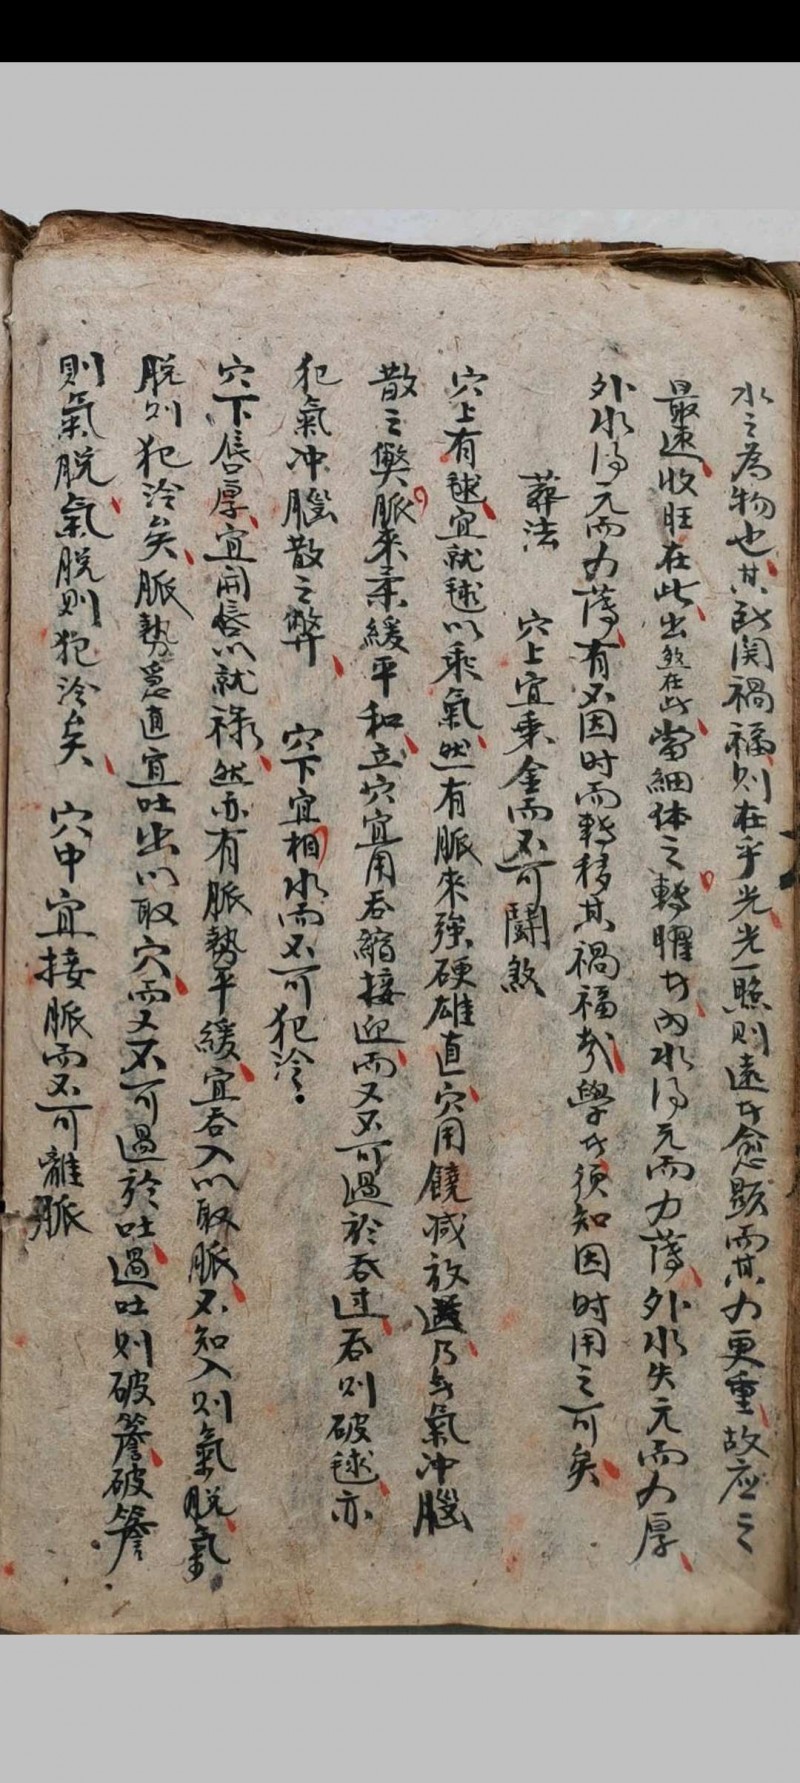 水之為物也其所関禍福則在乎光光一照則遠者愈顯而其力更重故應之
最速收旺在此出煞在此當細体之轉曜者内水得元而力薄外水失元而力厚
外水得元而力薄有不因时而轉移其禍福哉學者須知因时用之可矣
葬法 穴上宜乘金而不可鬪煞
穴上有毬宜就毬以乘氣然有脈來強硬雄直穴用饒减放送乃与氣冲腦
散之弊脈來柔緩平和立穴宜用吞縮接迎而又不可過於吞过吞則破毬亦
犯氣冲腦散之弊 穴下宜相水而不可犯冷
穴下唇厚宜開唇以就禄然亦有脈勢平緩宜吞入以取脈不知入則氣脱氣
脱則犯冷矣脈勢急直宜吐出以取穴而又不可過於吐過吐則破簷破簷
則氣脱氣脱則犯冷矣 穴中宜接脈而不可離脈